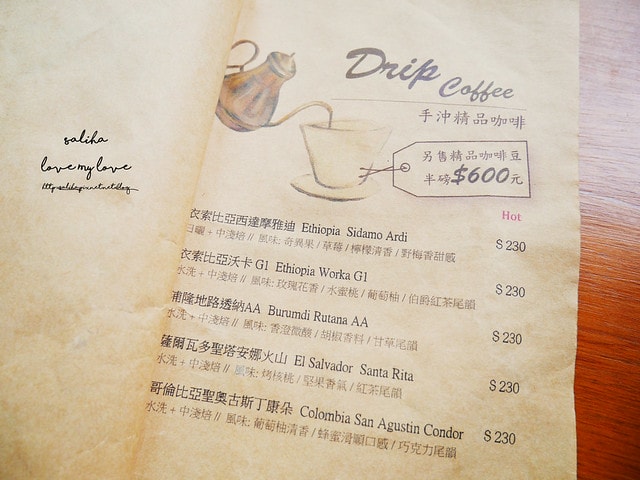 saliha
love my love
Drip Coffee
手沖精品咖啡
另售精品咖啡豆
半磅$600元
Hot
衣索比亞西達摩雅迪 Ethiopia Sidamo Ardi $230
日曬 + 中淺焙 // 風味: 奇異果 / 草莓 / 檸檬清香 / 野梅香甜感
衣索比亞沃卡 G1 Ethiopia Worka G1 $230
水洗 + 中淺焙 // 風味: 玫瑰花香 / 水蜜桃 / 葡萄柚 / 伯爵紅茶尾韻
浦隆地路透納AA Burumdi Rutana AA $230
水洗 + 中淺焙 // 風味: 香澄微酸 / 胡椒香料 / 甘草尾韻
薩爾瓦多聖塔安娜火山 El Salvador Santa Rita $230
水洗 + 中淺焙 // 風味: 烤核桃 / 堅果香氣 / 紅茶尾韻
哥倫比亞聖奧古斯丁康朵 Colombia San Agustin Condor $230
水洗 + 中淺焙 // 風味: 葡萄柚清香 / 蜂蜜滑順口感 / 巧克力尾韻